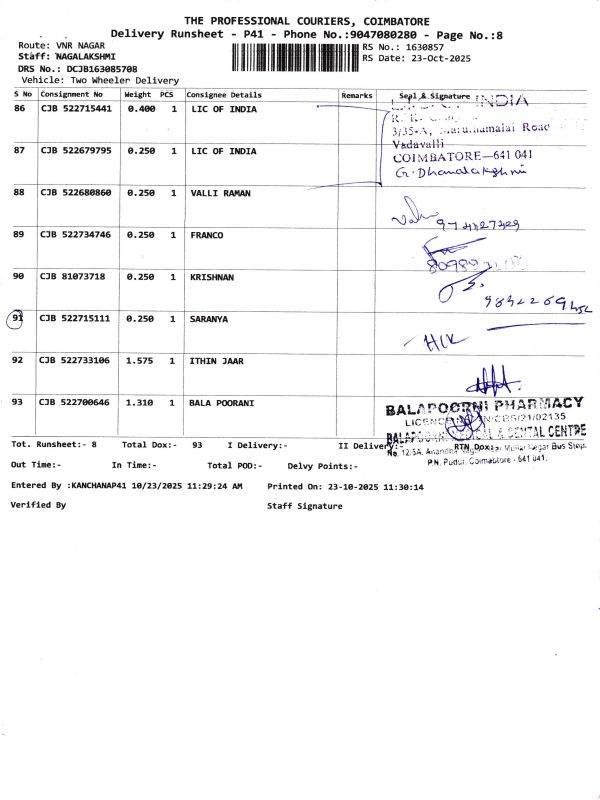 THE PROFESSIONAL COURIERS, COIMBATORE
Delivery Runsheet - P41 - Phone No.:9047080280 - Page No.:8
Route: VNR NAGAR
RS No.: 1630857
Staff: NAGALAKSHMI
RS Date: 23-Oct-2025
DRS No.: DCJB163085708
Vehicle: Two Wheeler Delivery
S No Consignment No Weight PCS Consignee Details Remarks Seal & Signature
86 CJB 522715441 0.400 1 LIC OF INDIA
INDIA
3/35-A, Maruthamalai Road
Vadavalli
COIMBATORE—641 041
G. Dhanalakshmi
87 CJB 522679795 0.250 1 LIC OF INDIA
88 CJB 522680860 0.250 1 VALLI RAMAN
89 CJB 522734746 0.250 1 FRANCO
90 CJB 81073718 0.250 1 KRISHNAN
91 CJB 522715111 0.250 1 SARANYA
H/K
92 CJB 522733106 1.575 1 ITHIN JAAR
93 CJB 522700646 1.310 1 BALA POORANI
BALAPOORNI PHARMACY
& DENTAL CENTRE
Bus Stop,
P.N. Pudur, Coimbatore - 641 041.
Tot. Runsheet:- 8 Total Dox:- 93 I Delivery:- II Delivery:- RTN Dox:-
Out Time:- In Time:- Total POD:- Delvy Points:-
Entered By :KANCHANAP41 10/23/2025 11:29:24 AM Printed On: 23-10-2025 11:30:14
Verified By Staff Signature